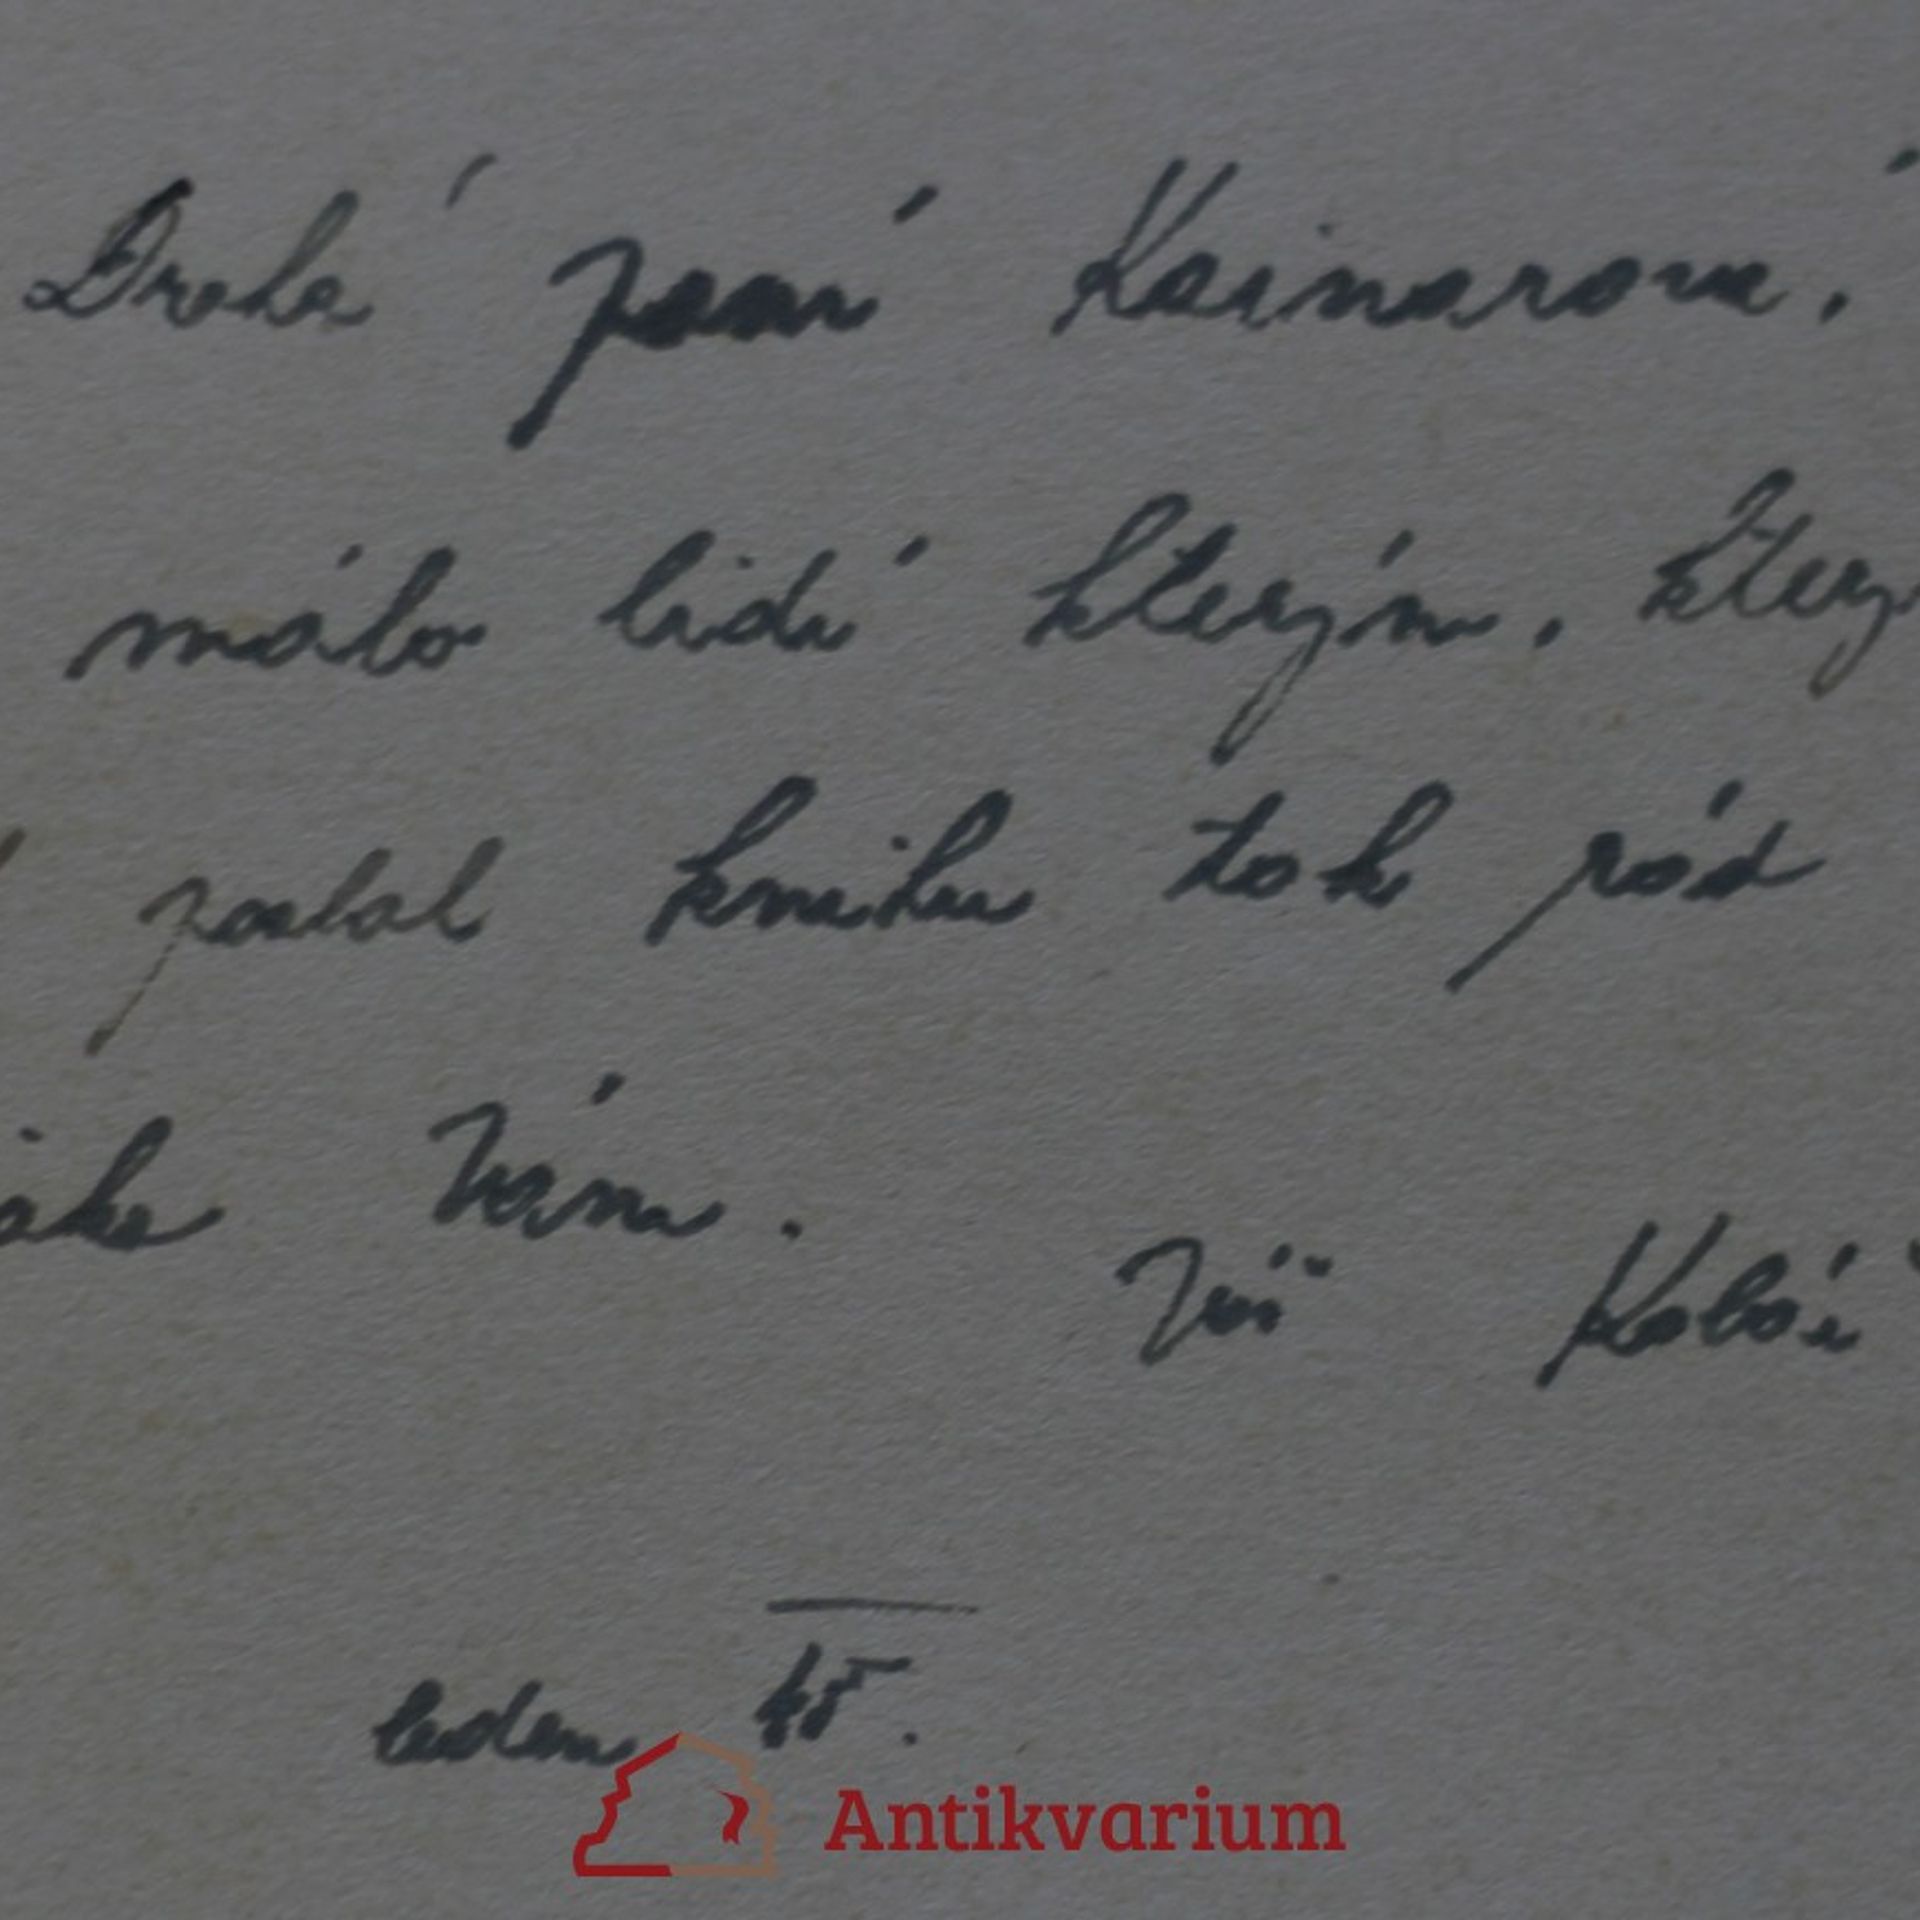 Drahá paní Kainarova,
málo lidí kterým, který
poslal knihu tak rád
jako Vám.
Jiří Kolář
leden 45.
Antikvarium